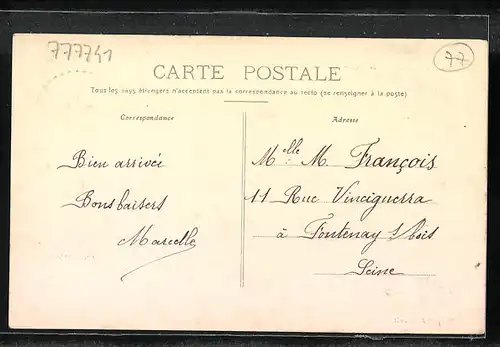 777741
77
CARTE POSTALE
Tous les pays étrangers n'acceptent pas la correspondance au recto (se renseigner à la poste)
Correspondance
Adresse
Bien arrivée
Bons baisers
Marcelle
Melle M. François
11 Rue Vinciguerra
à Fontenay s/bois
Seine